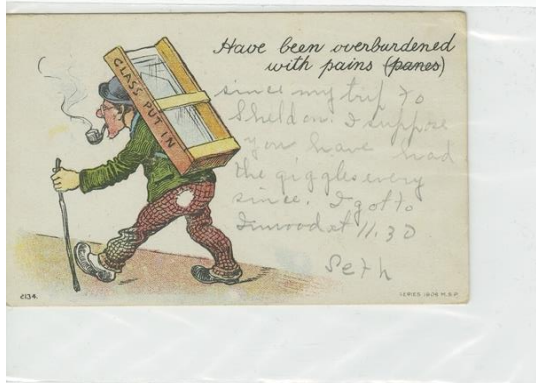 Have been overburdened
with pains (panes)
GLASS PUT IN
since my trip to
Sheldon. I suppose
you have had
the giggles every
since. I got to
Inwood at 11.30
Seth
2134.
SERIES 1906 M.S.P.